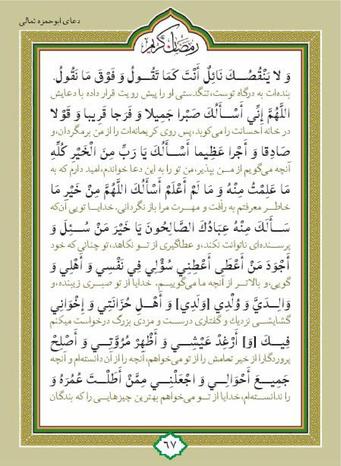 دعای ابوحمزه ثمالی
رمضان کریم
وَ لا يَنْقُصُكَ نَائِلٌ أَنْتَ كَمَا تَقُولُ وَ فَوْقَ مَا نَقُولُ.
بنده‌ات به درگاه توست، تنگدستی او را پیش رویت قرار داده با دعایش
اللَّهُمَّ إِنِّي أَسْأَلُكَ صَبْرا جَمِيلا وَ فَرَجا قَرِيبا وَ قَوْلا
در خانه احسانت را می‌کوبد، پس روی کریمانه‌ات را از من برمگردان، و
صَادِقا وَ أَجْرا عَظِيما أَسْأَلُكَ يَا رَبِّ مِنَ الْخَيْرِ كُلِّهِ
آنچه می‌گویم از من بپذیر، من تو را به این دعا خواندم، امید دارم که به
مَا عَلِمْتُ مِنْهُ وَ مَا لَمْ أَعْلَمْ أَسْأَلُكَ اللَّهُمَّ مِنْ خَيْرِ مَا
خاطر معرفتم به رأفت و مهرت مرا بازنگردانی، خدایا تویی آن‌که
سَأَلَكَ مِنْهُ عِبَادُكَ الصَّالِحُونَ يَا خَيْرَ مَنْ سُئِلَ وَ
پرسنده‌ای ناتوانت نکند، و عطاگیری از تو نکاهد، تو چنانی که خود
أَجْوَدَ مَنْ أَعْطَى أَعْطِنِي سُؤْلِي فِي نَفْسِي وَ أَهْلِي وَ
گویی، و بالاتر از آنچه ما می‌گوییم، خدایا از تو صبری زیبنده، و
وَالِدَيَّ وَ وُلْدِي [وَلَدِي] وَ أَهْلِ حُزَانَتِي وَ إِخْوَانِي
گشایشی نزدیک و گفتاری درست و مزدی بزرگ درخواست میکنم
فِيكَ [وَ] أَرْغِدْ عَيْشِي وَ أَظْهِرْ مُرُوَّتِي وَ أَصْلِحْ
پروردگارا از خیر تمامش را از تو می‌خواهم، آنچه را از آن دانسته‌ام و آنچه
جَمِيعَ أَحْوَالِي وَ اجْعَلْنِي مِمَّنْ أَطَلْتَ عُمُرَهُ وَ
را ندانسته‌ام، خدایا از تو می‌خواهم بهترین چیزهایی را که بندگان
۶۷